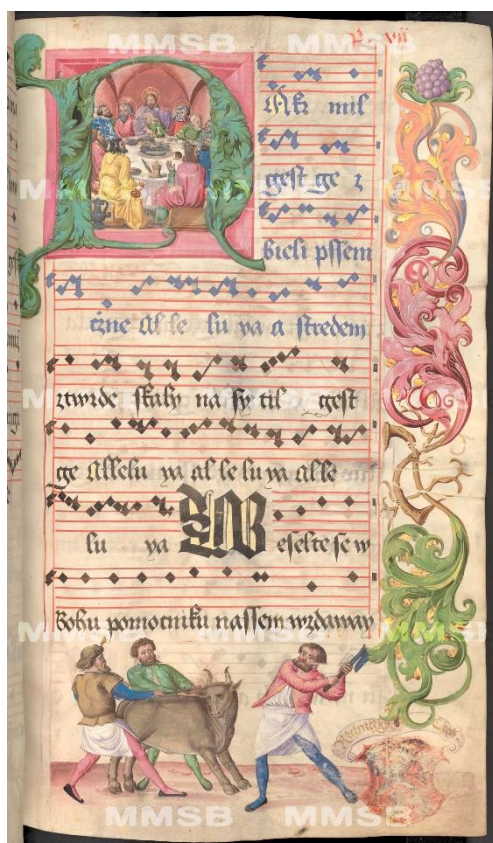 MMSB MMSB
xvii
NAkr mil
gest ge z
bieli pssem
czne Al le lu ya a stredem
ztwrde skaly na sy til gest
ge Allelu ya al le lu ya alle
lu ya W eselte se w
Bohu pomocniku nassem wzdaway
MMSB MMSB